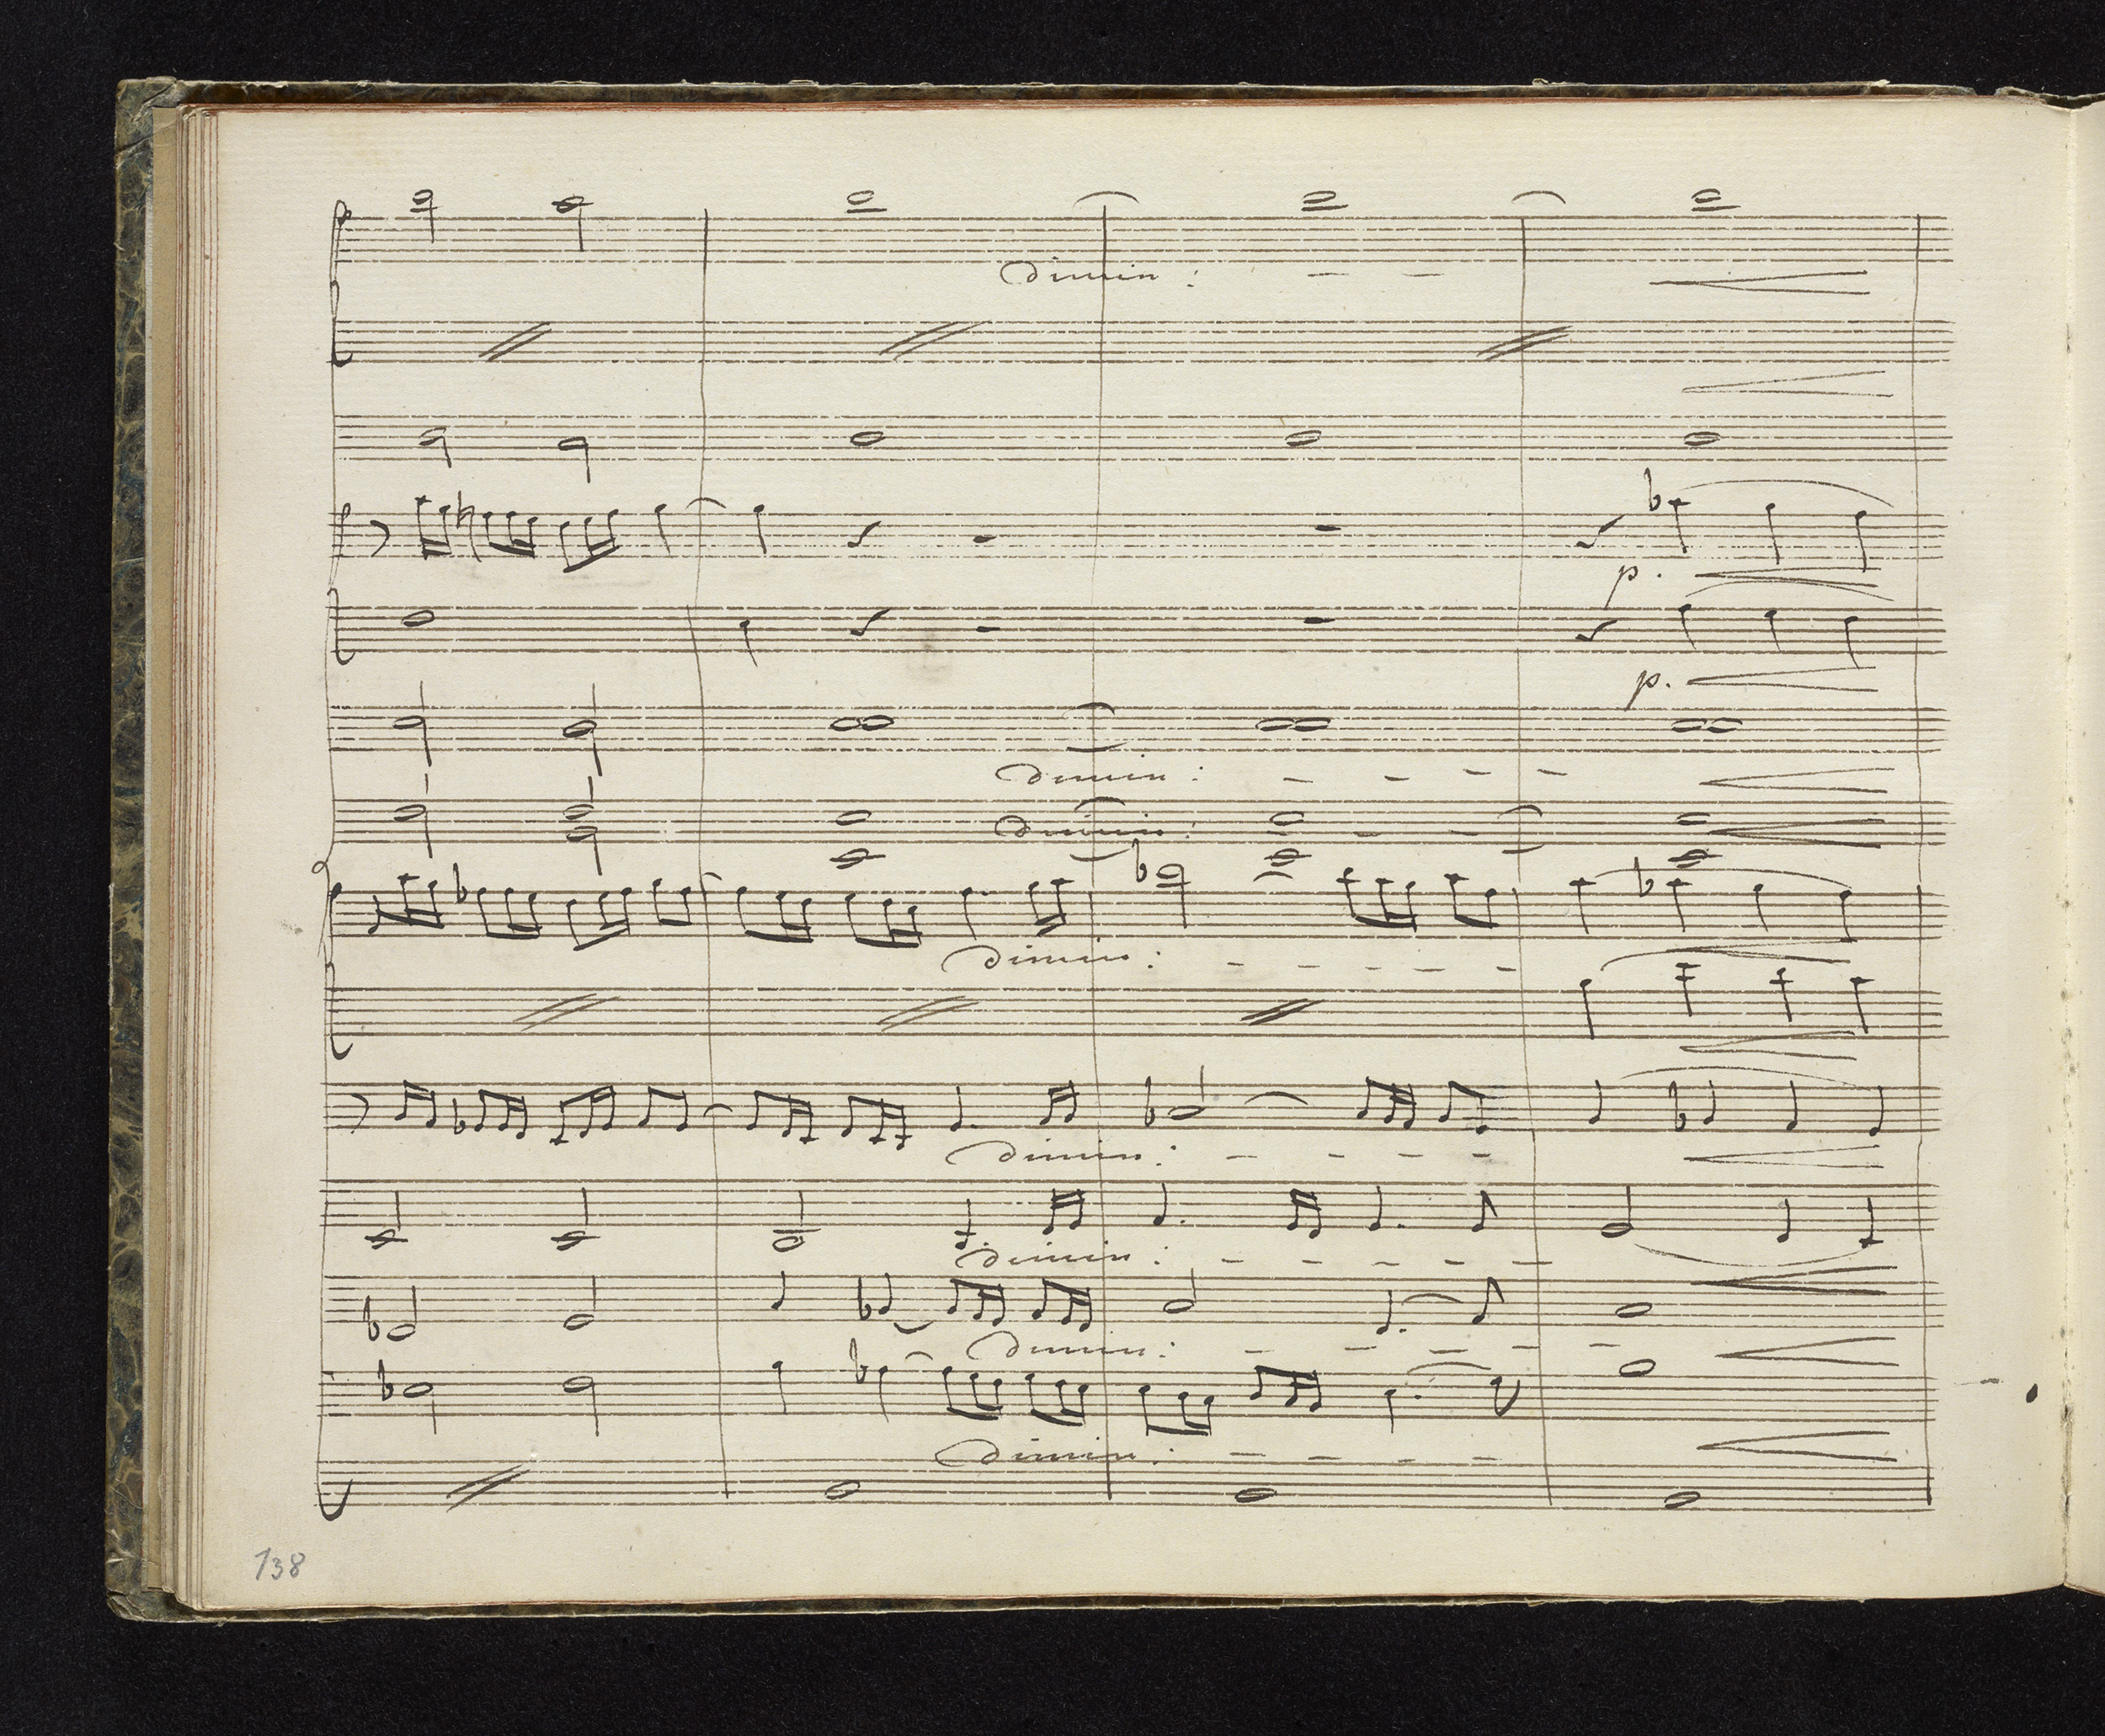 dimin:
p.
p.
dimin:
dimin:
dimin:
dimin:
dimin:
dimin:
dimin:
138